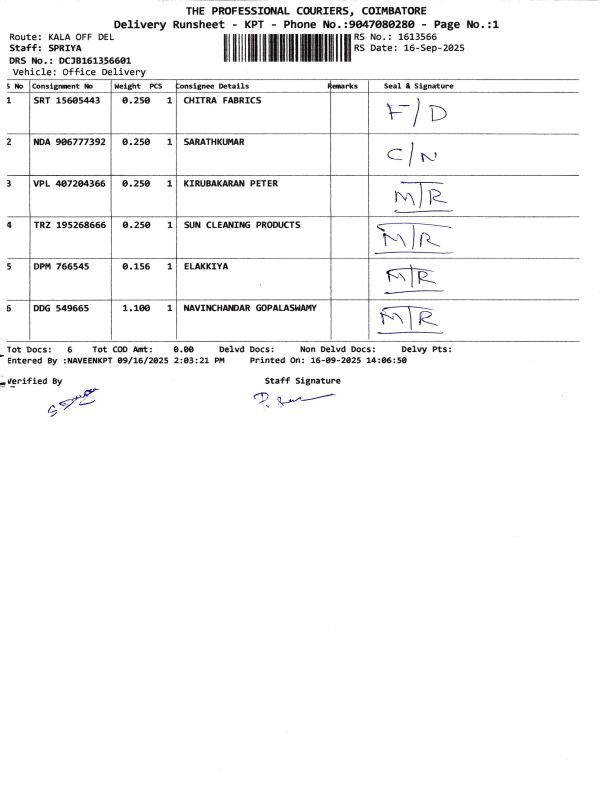 THE PROFESSIONAL COURIERS, COIMBATORE
Delivery Runsheet - KPT - Phone No.:9047080280 - Page No.:1
Route: KALA OFF DEL RS No.: 1613566
Staff: SPRIYA RS Date: 16-Sep-2025
DRS No.: DCJB161356601
Vehicle: Office Delivery
S No Consignment No Weight PCS Consignee Details Remarks Seal & Signature
1 SRT 15605443 0.250 1 CHITRA FABRICS F/D
2 NDA 906777392 0.250 1 SARATHKUMAR C/N
3 VPL 407204366 0.250 1 KIRUBAKARAN PETER M/R
4 TRZ 195268666 0.250 1 SUN CLEANING PRODUCTS M/R
5 DPM 766545 0.156 1 ELAKKIYA M/R
6 DDG 549665 1.100 1 NAVINCHANDAR GOPALASWAMY M/R
Tot Docs: 6 Tot COD Amt: 0.00 Delvd Docs: Non Delvd Docs: Delvy Pts:
Entered By :NAVEENKPT 09/16/2025 2:03:21 PM Printed On: 16-09-2025 14:06:50
Verified By Staff Signature